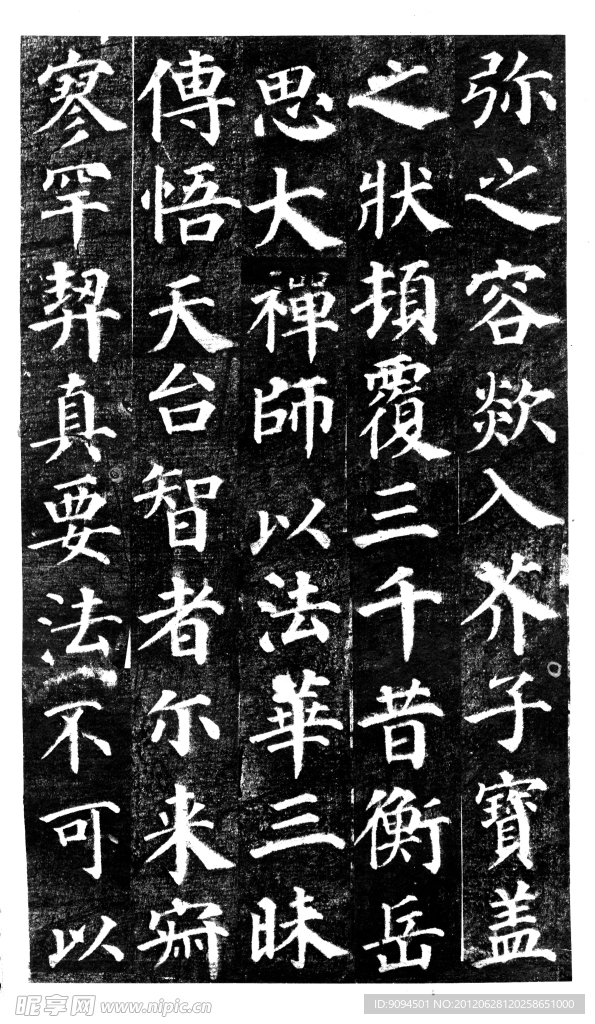 弥之容欻入芥子寶盖
之狀頓覆三千昔衡岳
思大禪師以法華三昧
傳悟天台智者尓来寂
寥罕契真要法不可以
昵享网 www.nipic.cn
ID:9094501 NO:20120628120258651000